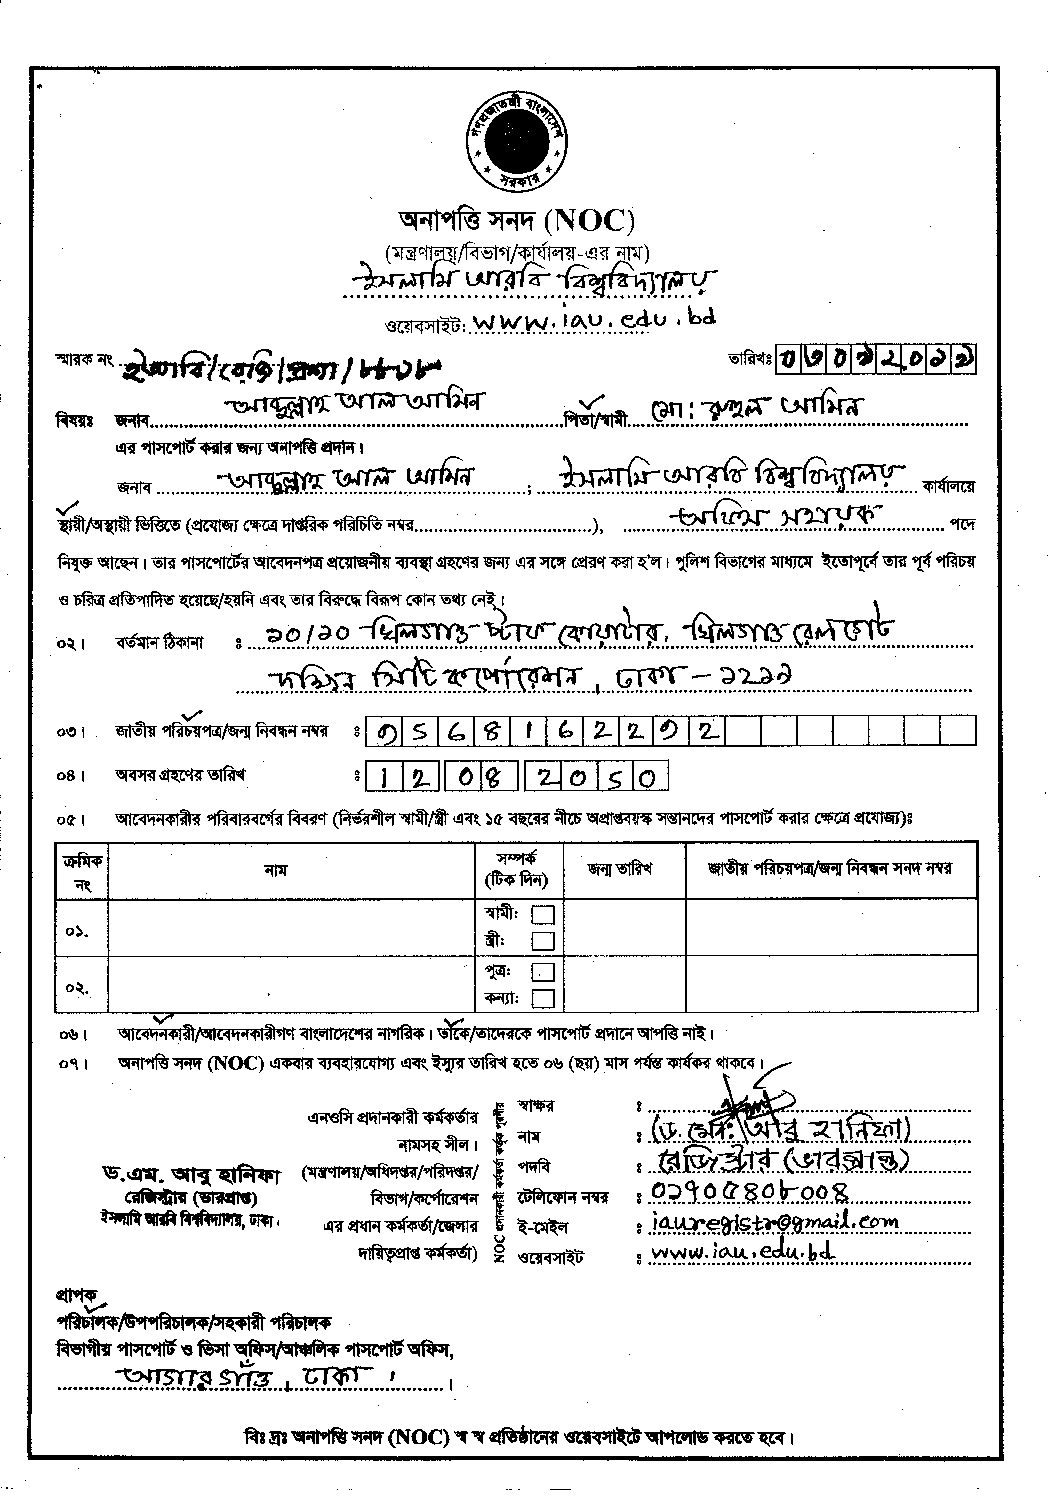 গণপ্রজাতন্ত্রী বাংলাদেশ
সরকার
অনাপত্তি সনদ (NOC)
(মন্ত্রণালয়/বিভাগ/কার্যালয়-এর নাম)
ইসলামি আরবি বিশ্ববিদ্যালয়
ওয়েবসাইট: www.iau.edu.bd
স্মারক নং ইআবি/রেজি/প্রশা/
তারিখঃ
বিষয়ঃ জনাব আব্দুল্লাহ আল আমিন পিতা/স্বামী মো: রুহুল আমিন
এর পাসপোর্ট করার জন্য অনাপত্তি প্রদান।
জনাব আব্দুল্লাহ আল আমিন ; ইসলামি আরবি বিশ্ববিদ্যালয় কার্যালয়ে
স্থায়ী/অস্থায়ী ভিত্তিতে (প্রযোজ্য ক্ষেত্রে দাপ্তরিক পরিচিতি নম্বর..............................), অফিস সহায়ক পদে
নিযুক্ত আছেন। তার পাসপোর্টের আবেদনপত্র প্রয়োজনীয় ব্যবস্থা গ্রহণের জন্য এর সঙ্গে প্রেরণ করা হ'ল। পুলিশ বিভাগের মাধ্যমে ইতোপূর্বে তার পূর্ব পরিচয়
ও চরিত্র প্রতিপাদিত হয়েছে/হয়নি এবং তার বিরুদ্ধে বিরূপ কোন তথ্য নেই।
০২। বর্তমান ঠিকানা ঃ ১০/১০ খিলগাঁও স্টাফ কোয়ার্টার, খিলগাঁও রেলগেট
দক্ষিণ সিটি কর্পোরেশন, ঢাকা - ১২১৯
০৩। জাতীয় পরিচয়পত্র/জন্ম নিবন্ধন নম্বর ঃ
০৪। অবসর গ্রহণের তারিখ ঃ 12 08 2050
০৫। আবেদনকারীর পরিবারবর্গের বিবরণ (নির্ভরশীল স্বামী/স্ত্রী এবং ১৫ বছরের নীচে অপ্রাপ্তবয়স্ক সন্তানদের পাসপোর্ট করার ক্ষেত্রে প্রযোজ্য)ঃ
ক্রমিক নং নাম সম্পর্ক (টিক দিন) জন্ম তারিখ জাতীয় পরিচয়পত্র/জন্ম নিবন্ধন সনদ নম্বর
০১. স্বামী:
স্ত্রী:
০২. পুত্র:
কন্যা:
০৬। আবেদনকারী/আবেদনকারীগণ বাংলাদেশের নাগরিক। তাঁকে/তাদেরকে পাসপোর্ট প্রদানে আপত্তি নাই।
০৭। অনাপত্তি সনদ (NOC) একবার ব্যবহারযোগ্য এবং ইস্যুর তারিখ হতে ০৬ (ছয়) মাস পর্যন্ত কার্যকর থাকবে।
এনওসি প্রদানকারী কর্মকর্তার
নামসহ সীল।
(মন্ত্রণালয়/অধিদপ্তর/পরিদপ্তর/
বিভাগ/কর্পোরেশন
এর প্রধান কর্মকর্তা/জেলার
দায়িত্বপ্রাপ্ত কর্মকর্তা)
ড.এম. আবু হানিফা
রেজিস্ট্রার (ভারপ্রাপ্ত)
ইসলামি আরবি বিশ্ববিদ্যালয়, ঢাকা।
NOC প্রদানকারী কর্মকর্তা কর্তৃক পূরণীয়
স্বাক্ষর ঃ
নাম ঃ (ড. মো: আবু হানিফা)
পদবি ঃ রেজিস্ট্রার (ভারপ্রাপ্ত)
টেলিফোন নম্বর ঃ
ই-মেইল ঃ iauregistr@gmail.com
ওয়েবসাইট ঃ www.iau.edu.bd
প্রাপক
পরিচালক/উপপরিচালক/সহকারী পরিচালক
বিভাগীয় পাসপোর্ট ও ভিসা অফিস/আঞ্চলিক পাসপোর্ট অফিস,
আগারগাঁও, ঢাকা।
বিঃ দ্রঃ অনাপত্তি সনদ (NOC) স্ব স্ব প্রতিষ্ঠানের ওয়েবসাইটে আপলোড করতে হবে।